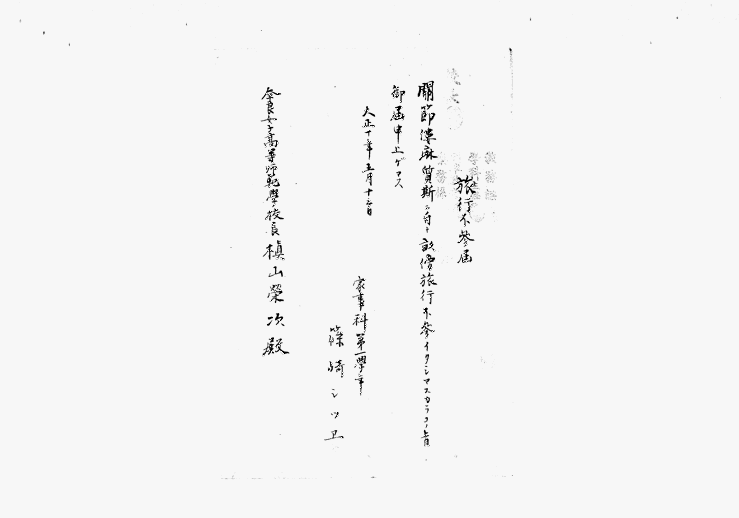 旅行不參届
關節僂麻質斯ニ付キ 旅行不參イタシマスカラコノ旨
御届申上ゲマス
大正十年五月十三日
家事科第一學年
篠崎シヅヱ
奈良女子高等師範學校長 槇山榮次殿